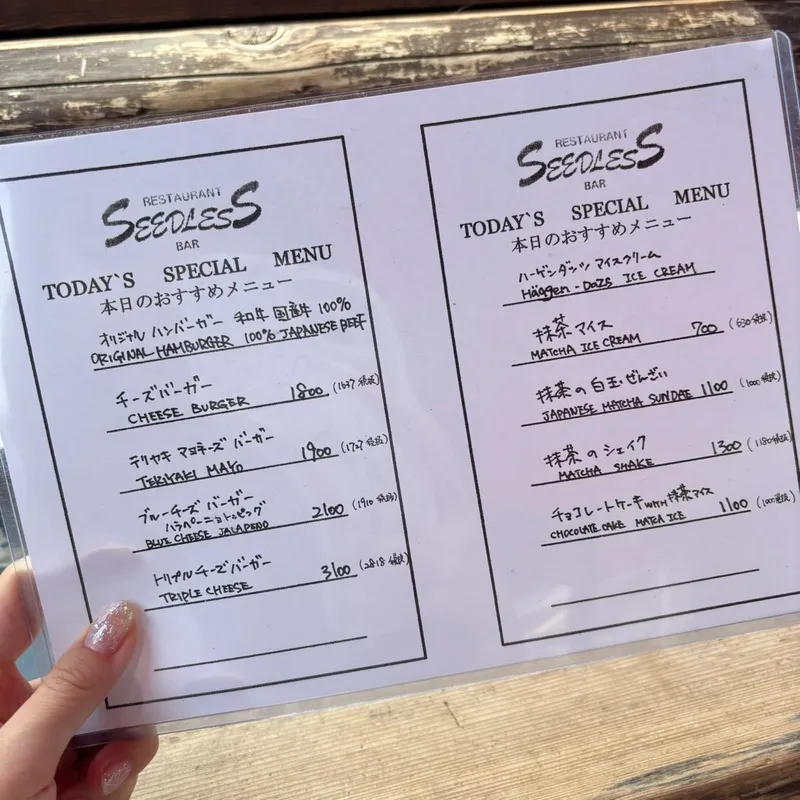 RESTAURANT
SEEDLESS
BAR
TODAY`S SPECIAL MENU
本日のおすすめメニュー
オリジナル ハンバーガー 和牛 国産牛 100%
ORIGINAL HAMBURGER 100% JAPANESE BEEF
チーズバーガー
CHEESE BURGER 1800 (1637 税抜)
テリヤキ マヨネーズ バーガー
TERIYAKI MAYO 1900 (1727 税抜)
ブルーチーズ バーガー
ハラペーニョトッピング
BLUE CHEESE JALAPENO 2100 (1910 税抜)
トリプルチーズバーガー
TRIPLE CHEESE 3100 (2818 税抜)
RESTAURANT
SEEDLESS
BAR
TODAY`S SPECIAL MENU
本日のおすすめメニュー
ハーゲンダッツ アイスクリーム
Häggen-Dazs ICE CREAM
抹茶 アイス
MATCHA ICE CREAM 700 (630 税抜)
抹茶の白玉・ぜんざい
JAPANESE MATCHA SUNDAE 1100 (1000 税抜)
抹茶のシェイク
MATCHA SHAKE 1300 (1180 税抜)
チョコレートケーキ WITH 抹茶アイス
CHOCOLATE CAKE MATCA ICE 1100 (1000 税抜)